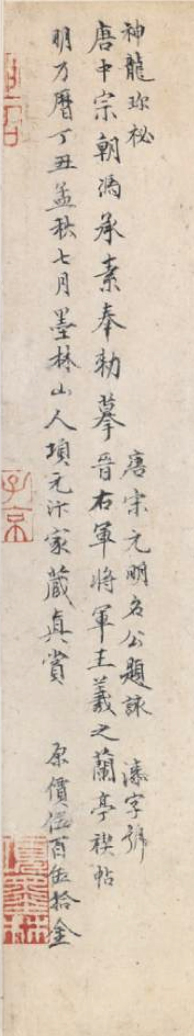 神龍珎秘 唐宋元明名公題詠 漆字號
唐中宗朝馮承素奉勅摹晉右軍將軍王羲之蘭亭禊帖
明万曆丁丑孟秋七月墨林山人項元汴家藏真賞 原價伍百伍拾金
子京